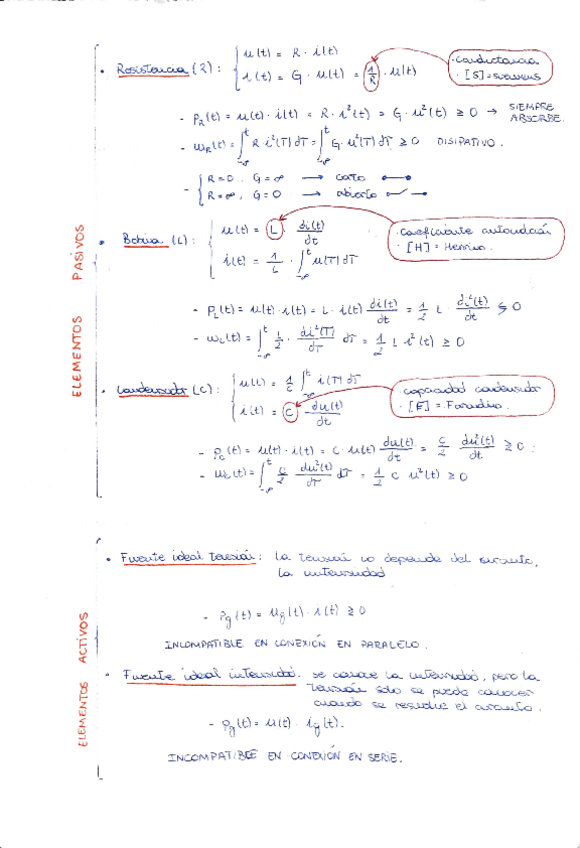 ELEMENTOS PASIVOS
• Resistencia (R): { u(t) = R · i(t)
i(t) = G · u(t) = 1/R · u(t)
· Conductancia
· [S] = siemens
- pR(t) = u(t) · i(t) = R · i²(t) = G · u²(t) ≥ 0 → SIEMPRE ABSORBE.
- wR(t) = ∫_{-∞}^{t} R · i²(T) dT = ∫_{-∞}^{t} G · u²(T) dT ≥ 0 DISIPATIVO.
- { R = 0, G = ∞ → corto
R = ∞, G = 0 → abierto
• Bobina (L): { u(t) = L · di(t)/dt
i(t) = 1/L · ∫_{-∞}^{t} u(T) dT
· Coeficiente autoinducción
· [H] = Henrios.
- pL(t) = u(t) · i(t) = L · i(t) di(t)/dt = 1/2 L · di²(t)/dt ≶ 0
- wL(t) = ∫_{-∞}^{t} L/2 · di²(T)/dT dT = 1/2 L i²(t) ≥ 0
• Condensador (C): { u(t) = 1/C ∫_{-∞}^{t} i(T) dT
i(t) = C · du(t)/dt
· capacidad condensador
· [F] = Faradios.
- pc(t) = u(t) · i(t) = C · u(t) du(t)/dt = C/2 du²(t)/dt ≷ 0 :
- wc(t) = ∫_{-∞}^{t} C/2 du²(T)/dT dT = 1/2 C u²(t) ≥ 0
ELEMENTOS ACTIVOS
• Fuente ideal tensión: la tensión no depende del circuito,
la intensidad
- pg(t) = ug(t) · i(t) ≷ 0
INCOMPATIBLE EN CONEXIÓN EN PARALELO.
• Fuente ideal intensidad. se conoce la intensidad, pero la
tensión solo se puede conocer
cuando se resuelve el circuito.
- pg(t) = u(t) · ig(t).
INCOMPATIBLE EN CONEXIÓN EN SERIE.